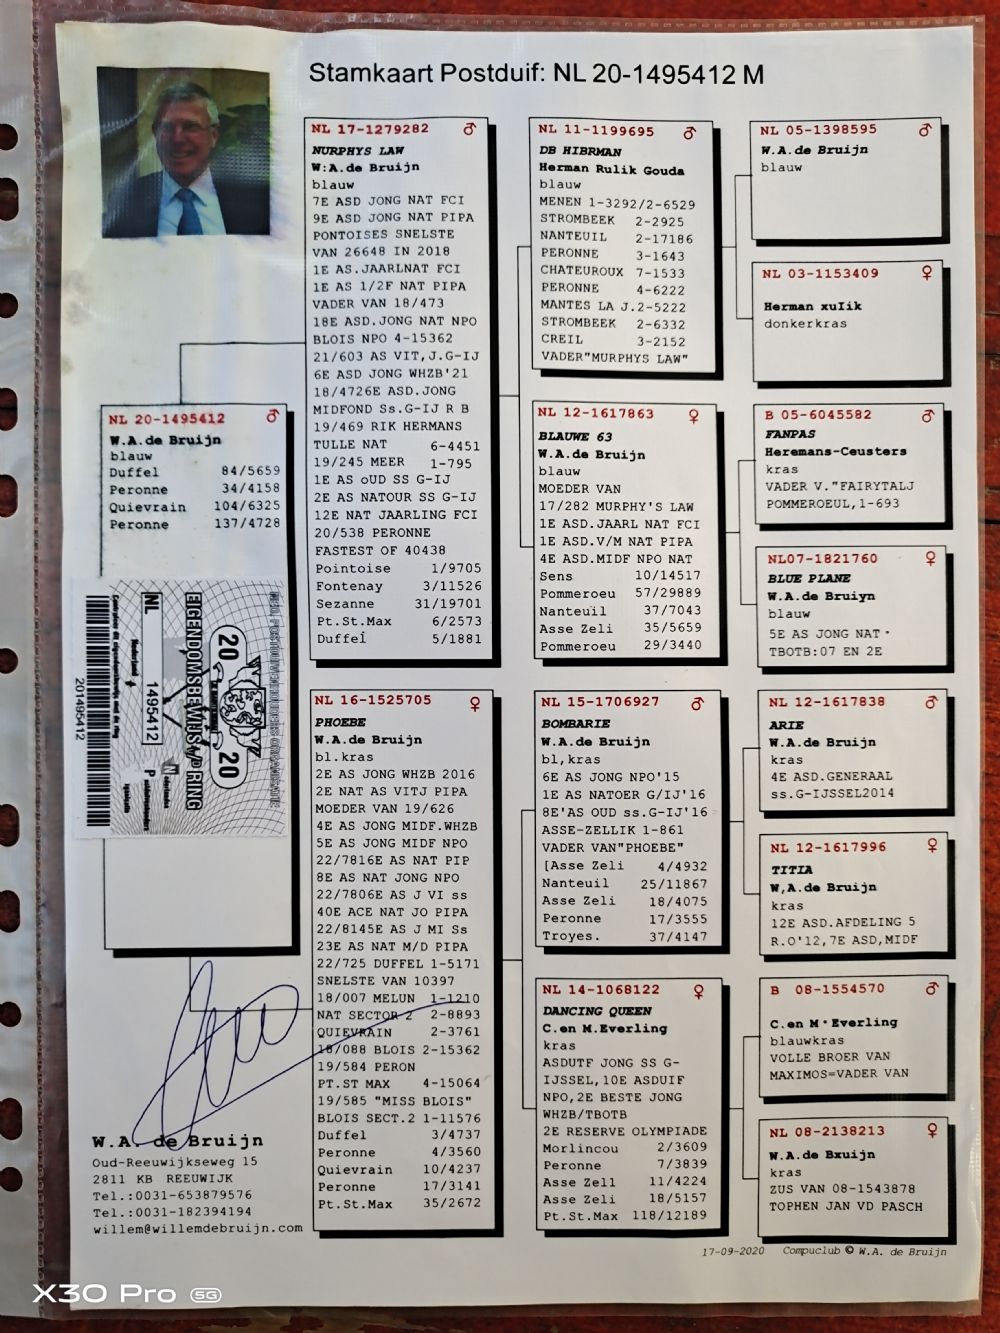 Stamkaart Postduif: NL 20-1495412 M
NL 20-1495412 ♂
W.A.de Bruijn
blauw
Duffel 84/5659
Peronne 34/4158
Quievrain 104/6325
Peronne 137/4728
EIGENDOMSBEWIJS v/D RING
20 20
NL 1495412
Nederland
201495412
W.A. de Bruijn
Oud-Reeuwijkseweg 15
2811 KB REEUWIJK
Tel.:0031-653879576
Tel.:0031-182394194
willem@willemdebruijn.com
NL 17-1279282 ♂
NURPHYS LAW
W:A.de Bruijn
blauw
7E ASD JONG NAT FCI
9E ASD JONG NAT PIPA
PONTOISES SNELSTE
VAN 26648 IN 2018
1E AS.JAARLNAT FCI
1E AS 1/2F NAT PIPA
VADER VAN 18/473
18E ASD.JONG NAT NPO
BLOIS NPO 4-15362
21/603 AS VIT,J.G-IJ
6E ASD JONG WHZB'21
18/4726E ASD.JONG
MIDFOND Ss.G-IJ R B
19/469 RIK HERMANS
TULLE NAT 6-4451
19/245 MEER 1-795
1E AS oUD SS G-IJ
2E AS NATOUR SS G-IJ
12E NAT JAARLING FCI
20/538 PERONNE
FASTEST OF 40438
Pointoise 1/9705
Fontenay 3/11526
Sezanne 31/19701
Pt.St.Max 6/2573
Duffel 5/1881
NL 16-1525705 ♀
PHOEBE
W.A.de Bruijn
bl.kras
2E AS JONG WHZB 2016
2E NAT AS VITJ PIPA
MOEDER VAN 19/626
4E AS JONG MIDF.WHZB
5E AS JONG MIDF NPO
22/7816E AS NAT PIP
8E AS NAT JONG NPO
22/7806E AS J VI ss
40E ACE NAT JO PIPA
22/8145E AS J MI Ss
23E AS NAT M/D PIPA
22/725 DUFFEL 1-5171
SNELSTE VAN 10397
18/007 MELUN 1-1210
NAT SECTOR 2 2-8893
QUIEVRAIN 2-3761
18/088 BLOIS 2-15362
19/584 PERON
PT.ST MAX 4-15064
19/585 "MISS BLOIS"
BLOIS SECT.2 1-11576
Duffel 3/4737
Peronne 4/3560
Quievrain 10/4237
Peronne 17/3141
Pt.St.Max 35/2672
NL 11-1199695 ♂
DB HIBRMAN
Herman Rulik Gouda
blauw
MENEN 1-3292/2-6529
STROMBEEK 2-2925
NANTEUIL 2-17186
PERONNE 3-1643
CHATEUROUX 7-1533
PERONNE 4-6222
MANTES LA J.2-5222
STROMBEEK 2-6332
CREIL 3-2152
VADER"MURPHYS LAW"
NL 12-1617863 ♀
BLAUWE 63
W.A.de Bruijn
blauw
MOEDER VAN
17/282 MURPHY'S LAW
1E ASD.JAARL NAT FCI
1E ASD.V/M NAT PIPA
4E ASD.MIDF NPO NAT
Sens 10/14517
Pommeroeu 57/29889
Nanteuil 37/7043
Asse Zeli 35/5659
Pommeroeu 29/3440
NL 15-1706927 ♂
BOMBARIE
W.A.de Bruijn
bl,kras
6E AS JONG NPO'15
1E AS NATOER G/IJ'16
8E'AS OUD ss.G-IJ'16
ASSE-ZELLIK 1-861
VADER VAN"PHOEBE"
[Asse Zeli 4/4932
Nanteuil 25/11867
Asse Zeli 18/4075
Peronne 17/3555
Troyes. 37/4147
NL 14-1068122 ♀
DANCING QUEEN
C.en M.Everling
kras
ASDUTF JONG SS G-
IJSSEL,10E ASDUIF
NPO,2E BESTE JONG
WHZB/TBOTB
2E RESERVE OLYMPIADE
Morlincou 2/3609
Peronne 7/3839
Asse Zell 11/4224
Asse Zeli 18/5157
Pt.St.Max 118/12189
NL 05-1398595 ♂
W.A.de Bruijn
blauw
NL 03-1153409 ♀
Herman xulik
donkerkras
B 05-6045582 ♂
FANPAS
Heremans-Ceusters
kras
VADER V."FAIRYTALJ
POMMEROEUL,1-693
NL07-1821760 ♀
BLUE PLANE
W.A.de Bruiyn
blauw
5E AS JONG NAT·
TBOTB:07 EN 2E
NL 12-1617838 ♂
ARIE
W.A.de Bruijn
kras
4E ASD.GENERAAL
ss.G-IJSSEL2014
NL 12-1617996 ♀
TITIA
W,A.de Bruijn
kras
12E ASD.AFDELING 5
R.O'12,7E ASD,MIDF
B 08-1554570 ♂
C.en M·Everling
blauwkras
VOLLE BROER VAN
MAXIMOS=VADER VAN
NL 08-2138213 ♀
W.A.de Bxuijn
kras
ZUS VAN 08-1543878
TOPHEN JAN VD PASCH
17-09-2020 Compuclub © W.A. de Bruijn
X30 Pro 5G